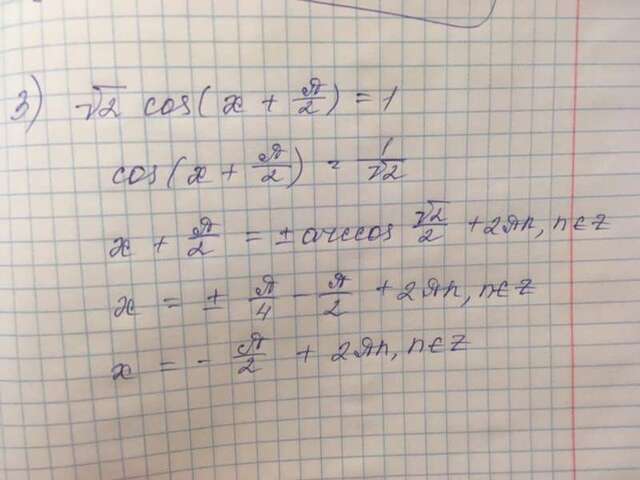 3) √2 cos(x + π/2) = 1
cos(x + π/2) = 1/√2
x + π/2 = ± arccos √2/2 + 2πn, n∈Z
x = ± π/4 - π/2 + 2πn, n∈Z
x = - π/2 + 2πn, n∈Z